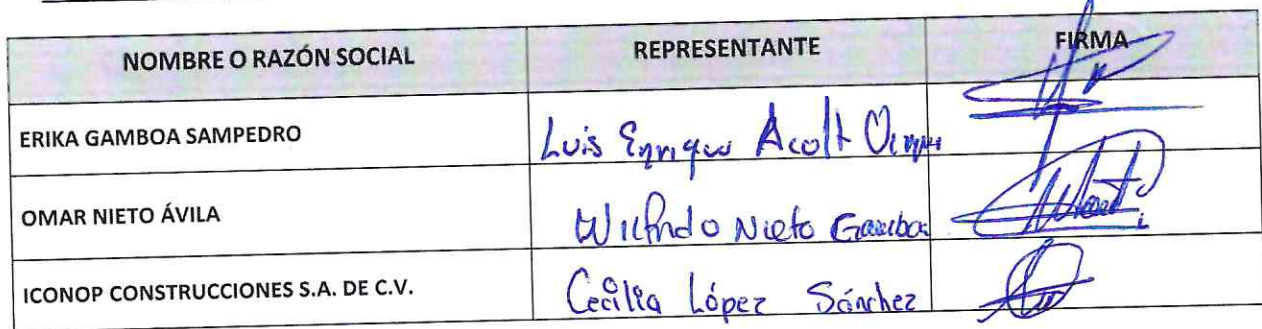 NOMBRE O RAZÓN SOCIAL REPRESENTANTE FIRMA
ERIKA GAMBOA SAMPEDRO Luis Enrique Acolt
OMAR NIETO ÁVILA Wilfrido Nieto Gamboa
ICONOP CONSTRUCCIONES S.A. DE C.V. Cecilia López Sánchez